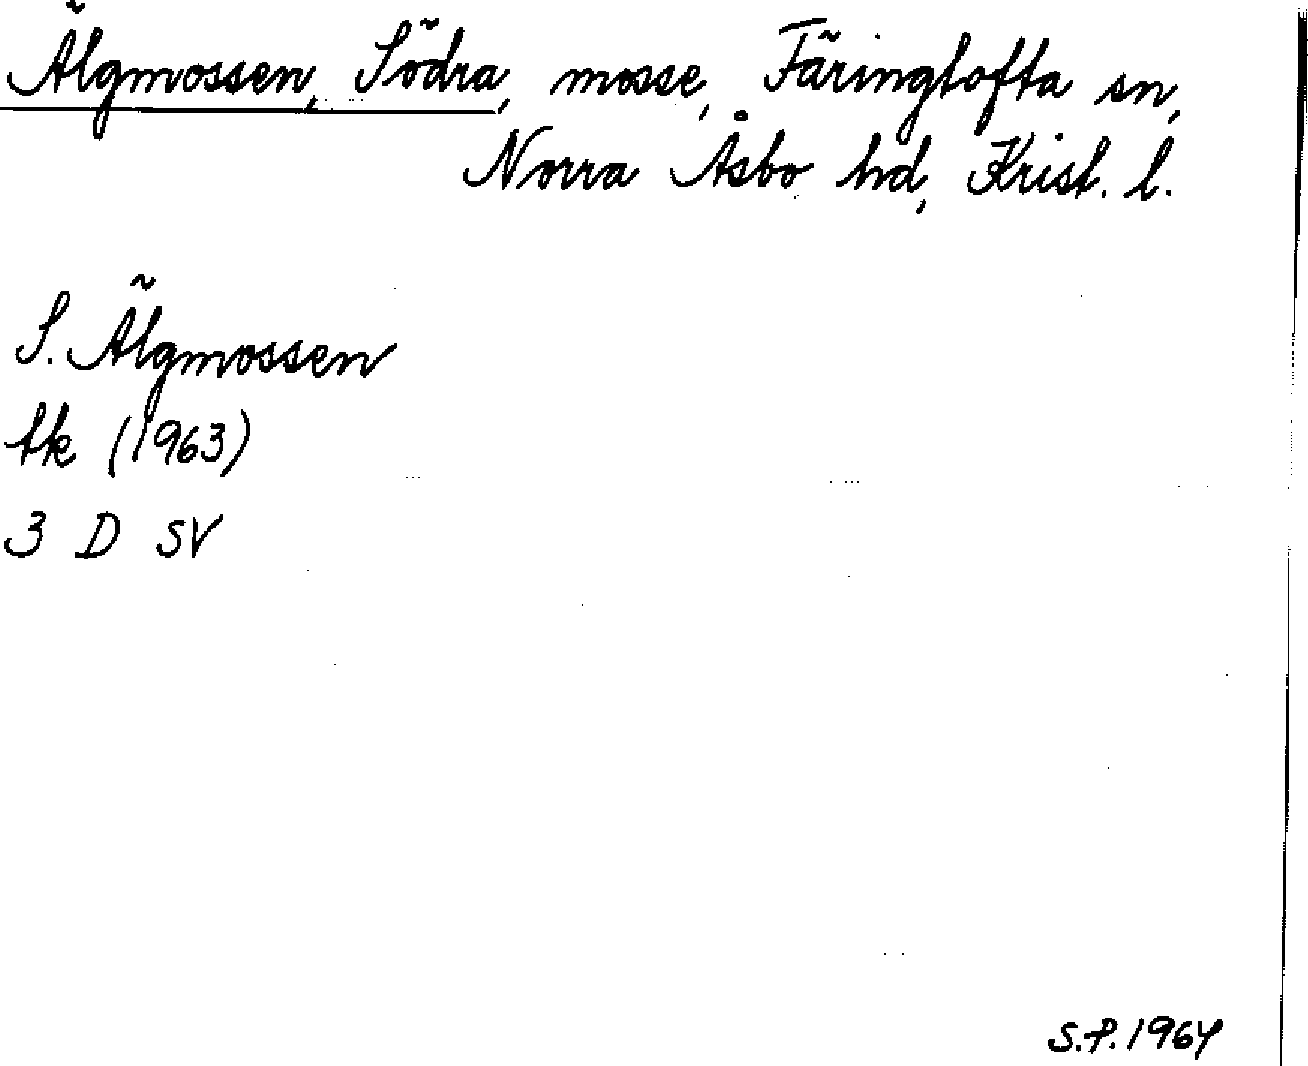 Älgmossen, Södra, mosse, Färingtofta sn,
Norra Åsbo hd, Krist. l.
S. Älgmossen
tk (1963)
3 D SV
S.P. 1964